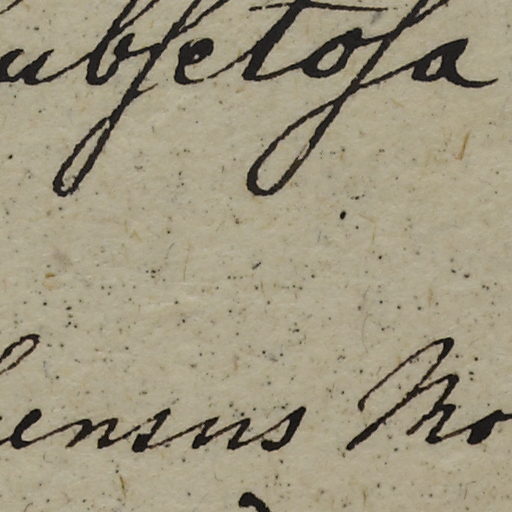 ubſetoſa
ensus Mo